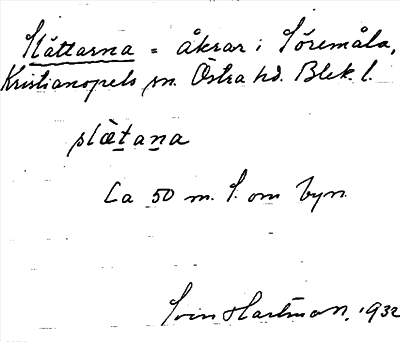 Slättarna = åkrar i Söremåla,
Kristianopels sn. Östra hd. Blek. l.
slæ̀tana
Ca 50 m. S. om byn.
Sven Hartman, 1932